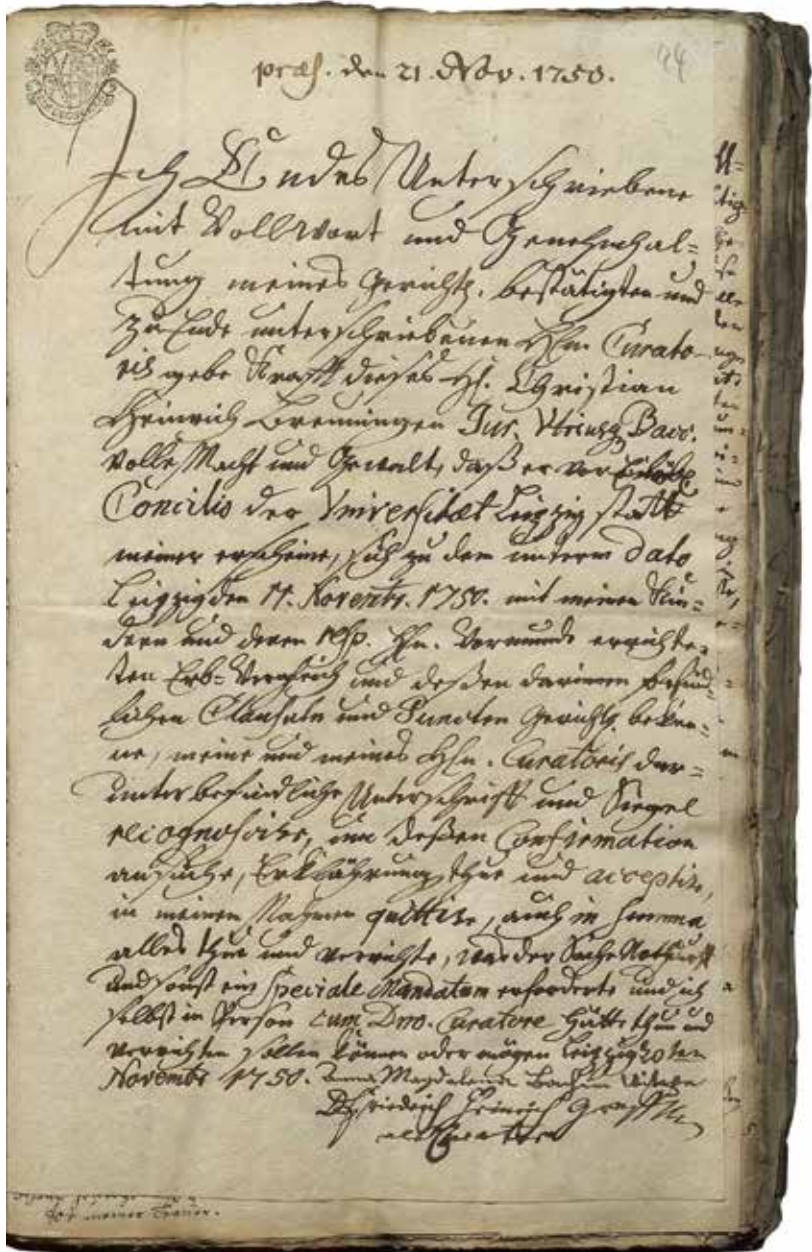 præs. den 21. Nov. 1750.
24
Ich Endes Unterschriebene
mit Vollwort und Genehmhal=
tung meines Gerichtl. bestätigten und
zu Ende unterschriebenen Hln. Curato-
ris gebe Krafft dieses H. Christian
Heinrich Breuningen Jur. Utriusq Bacc.
volle Macht und Gewalt, daß er vor
Concilio der Universitæt Leipzig statt
meiner erscheine, sich zu dem unterm dato
Leipzig den 11. Novembr. 1750. mit meinen Kin=
dern und deren resp. Hn. Vormunde errichte-
ten Erb=Vergleich und deßen darinnen befind=
lichen Clausuln und Puncten Gerichtl. beken=
ne, meine und meines Hln. Curatoris dar=
unter befindliche Unterschrifft und Siegel
recognoscire, um deßen Confirmation
ansuche, Erklährung thue und acceptire,
in meinen Nahmen quittire, auch in Summa
alles thue und verrichte, was der Sache Nothdurfft
und sonst ein Speciale Mandatum erforderte und ich
selbst in Person cum Dno. Curatore hätte thun und
verrichten sollen können oder mögen Leipzig 20ten
Novembr 1750. Anna Magdalena Bachin Witbe
D Friedrich Heinrich Graff
als Curator